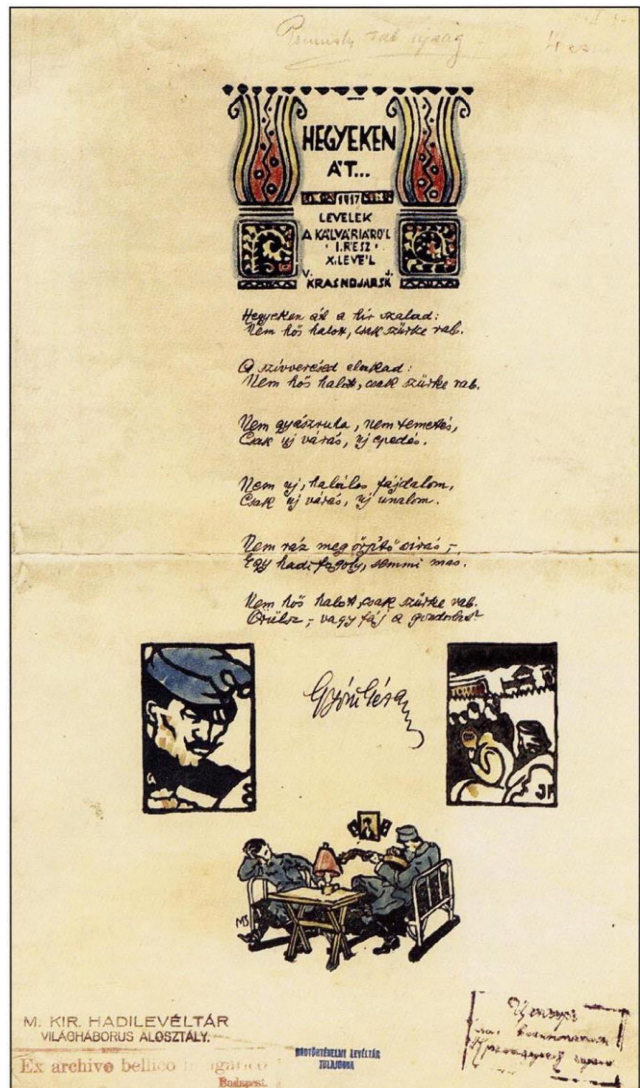 rab ujság
HEGYEKEN
ÁT...
1917
LEVELEK
A KÁLVÁRIÁRÓL
· I. RÉSZ ·
X. LEVÉL
V. J.
KRASNOJARSK
Hegyeken át a hír szalad:
Nem hős halott, csak szürke rab.
A szívverésed elakad:
Nem hős halott, csak szürke rab.
Nem gyászruha, nem temetés,
Csak uj várás, uj epedés.
Nem uj, halálos fájdalom,
Csak uj várás, uj unalom.
Nem ráz meg őrjítő sirás,-
Egy hadifogoly, semmi más.
Nem hős halott, csak szürke rab.
Örülsz,- vagy fáj a gondolat?
Gyóni Géza
MS
M. KIR. HADILEVÉLTÁR
VILÁGHÁBORUS ALOSZTÁLY.
Ex archivo bellico
Budapest.
HADTÖRTÉNELMI LEVÉLTÁR
TULAJDONA